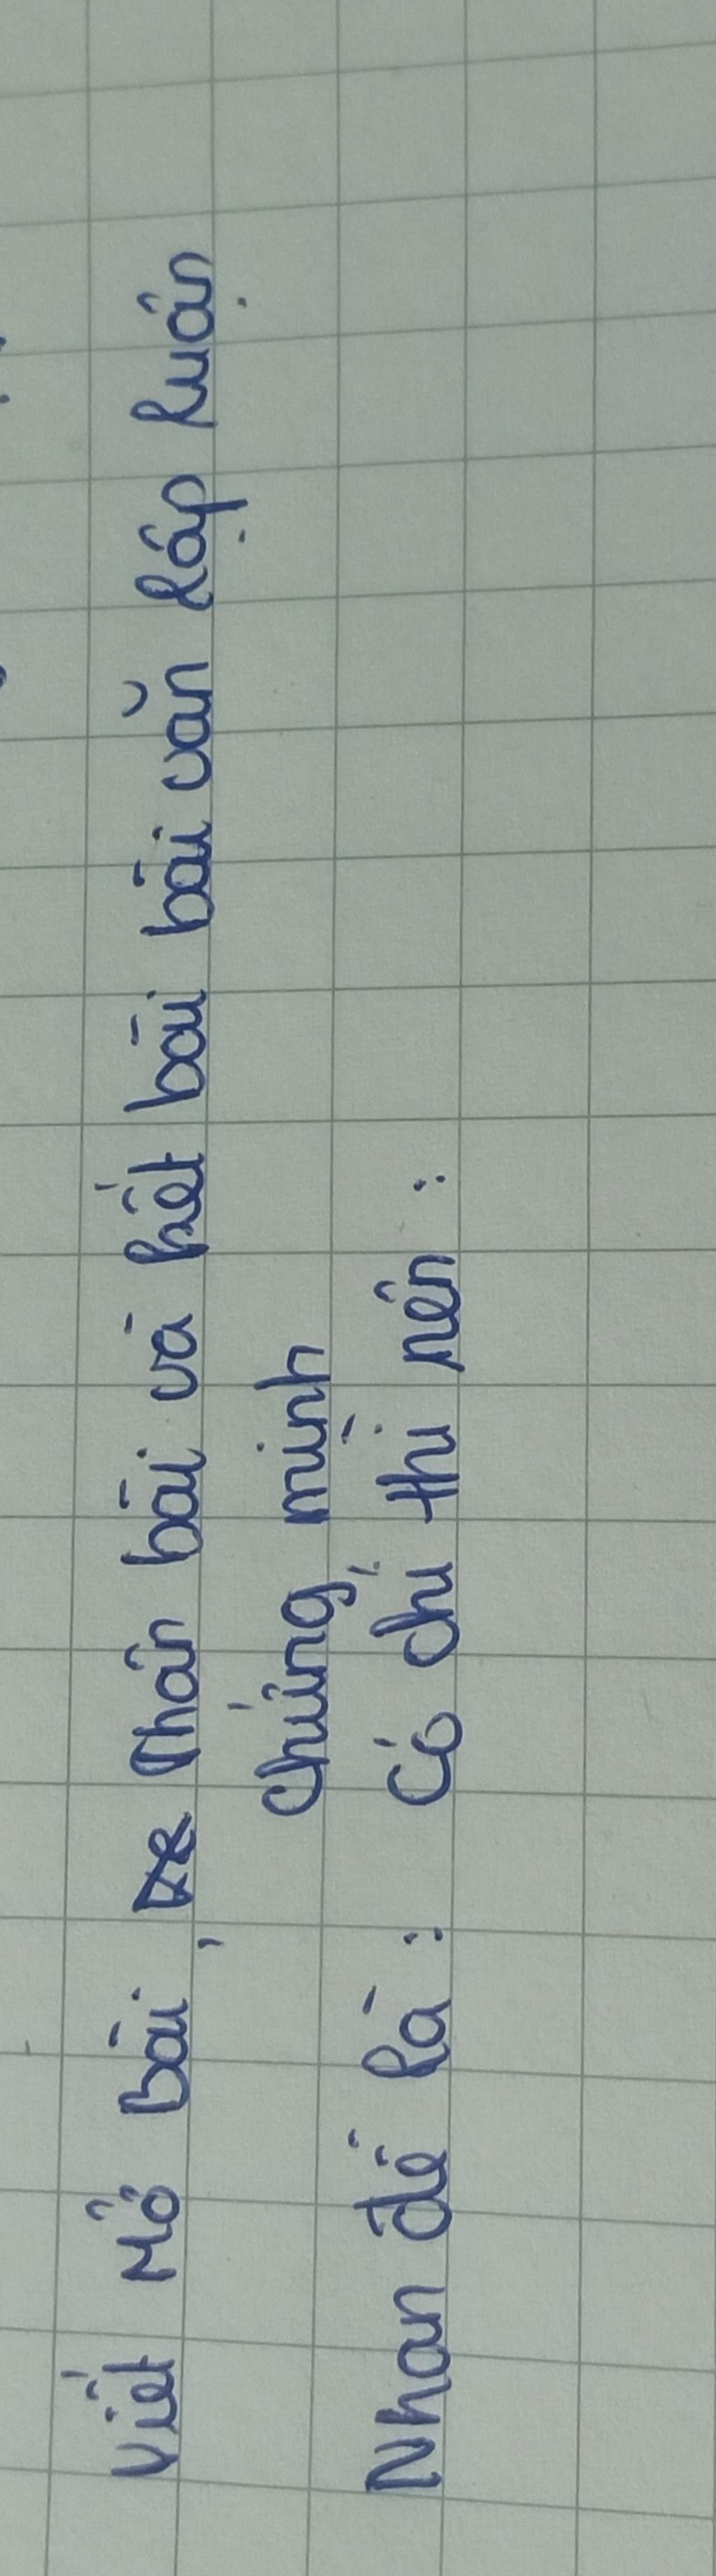 Viết Mở Bài, Thân bài và kết bài bài văn lập luận
chứng minh
Nhan đề là : Có chí thì nên :